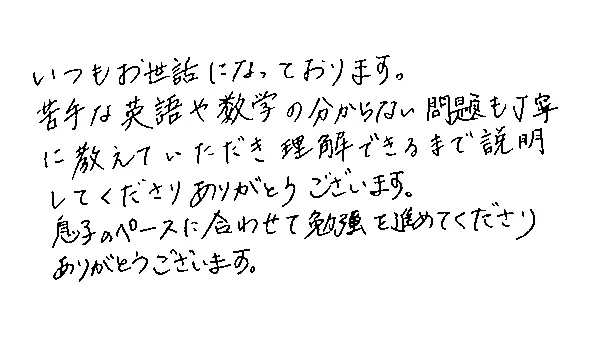 いつもお世話になっております。
苦手な英語や数学の分からない問題も丁寧
に教えていただき理解できるまで説明
してくださりありがとうございます。
息子のペースに合わせて勉強を進めてくださり
ありがとうございます。